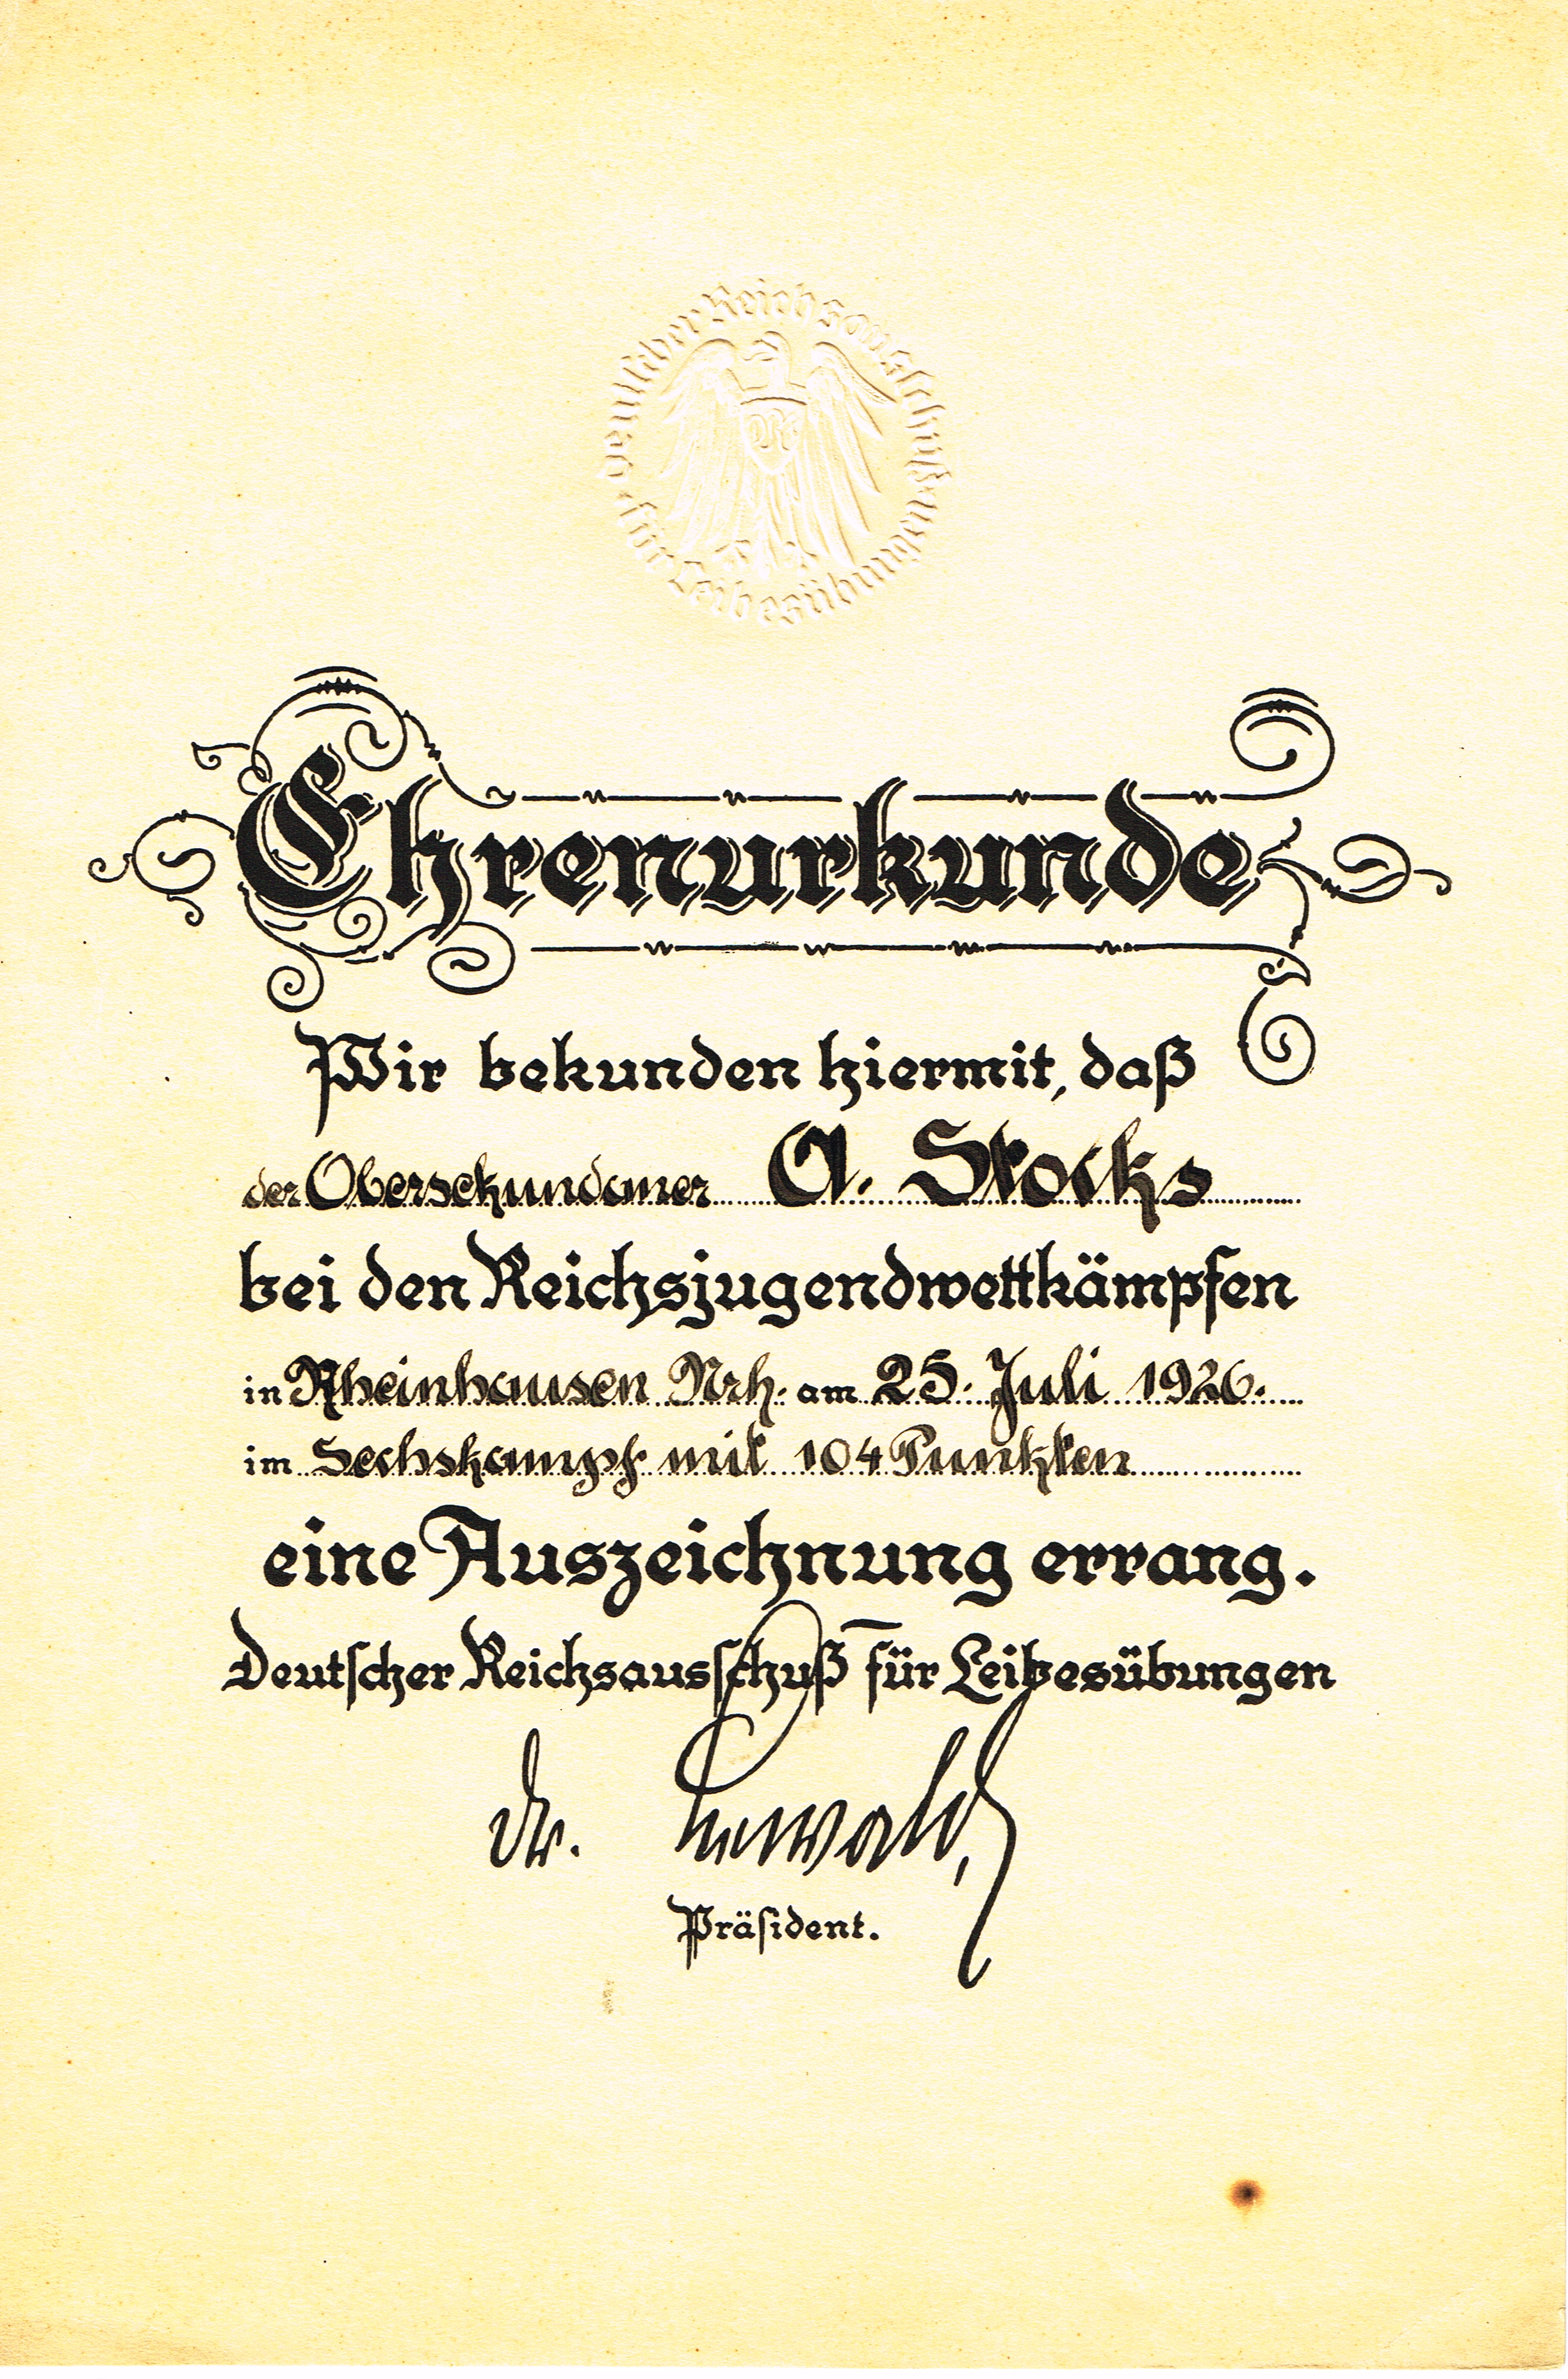 Deutscher Reichsausschuß für Leibesübungen
DRA
Ehrenurkunde
Wir bekunden hiermit, daß
der Obersekundaner A. Stocks
bei den Reichsjugendwettkämpfen
in Rheinhausen Nrh. am 25. Juli 1926.
im Sechskampf mit 104 Punkten
eine Auszeichnung errang.
Deutscher Reichsausschuß für Leibesübungen
Dr. Lewald,
Präsident.